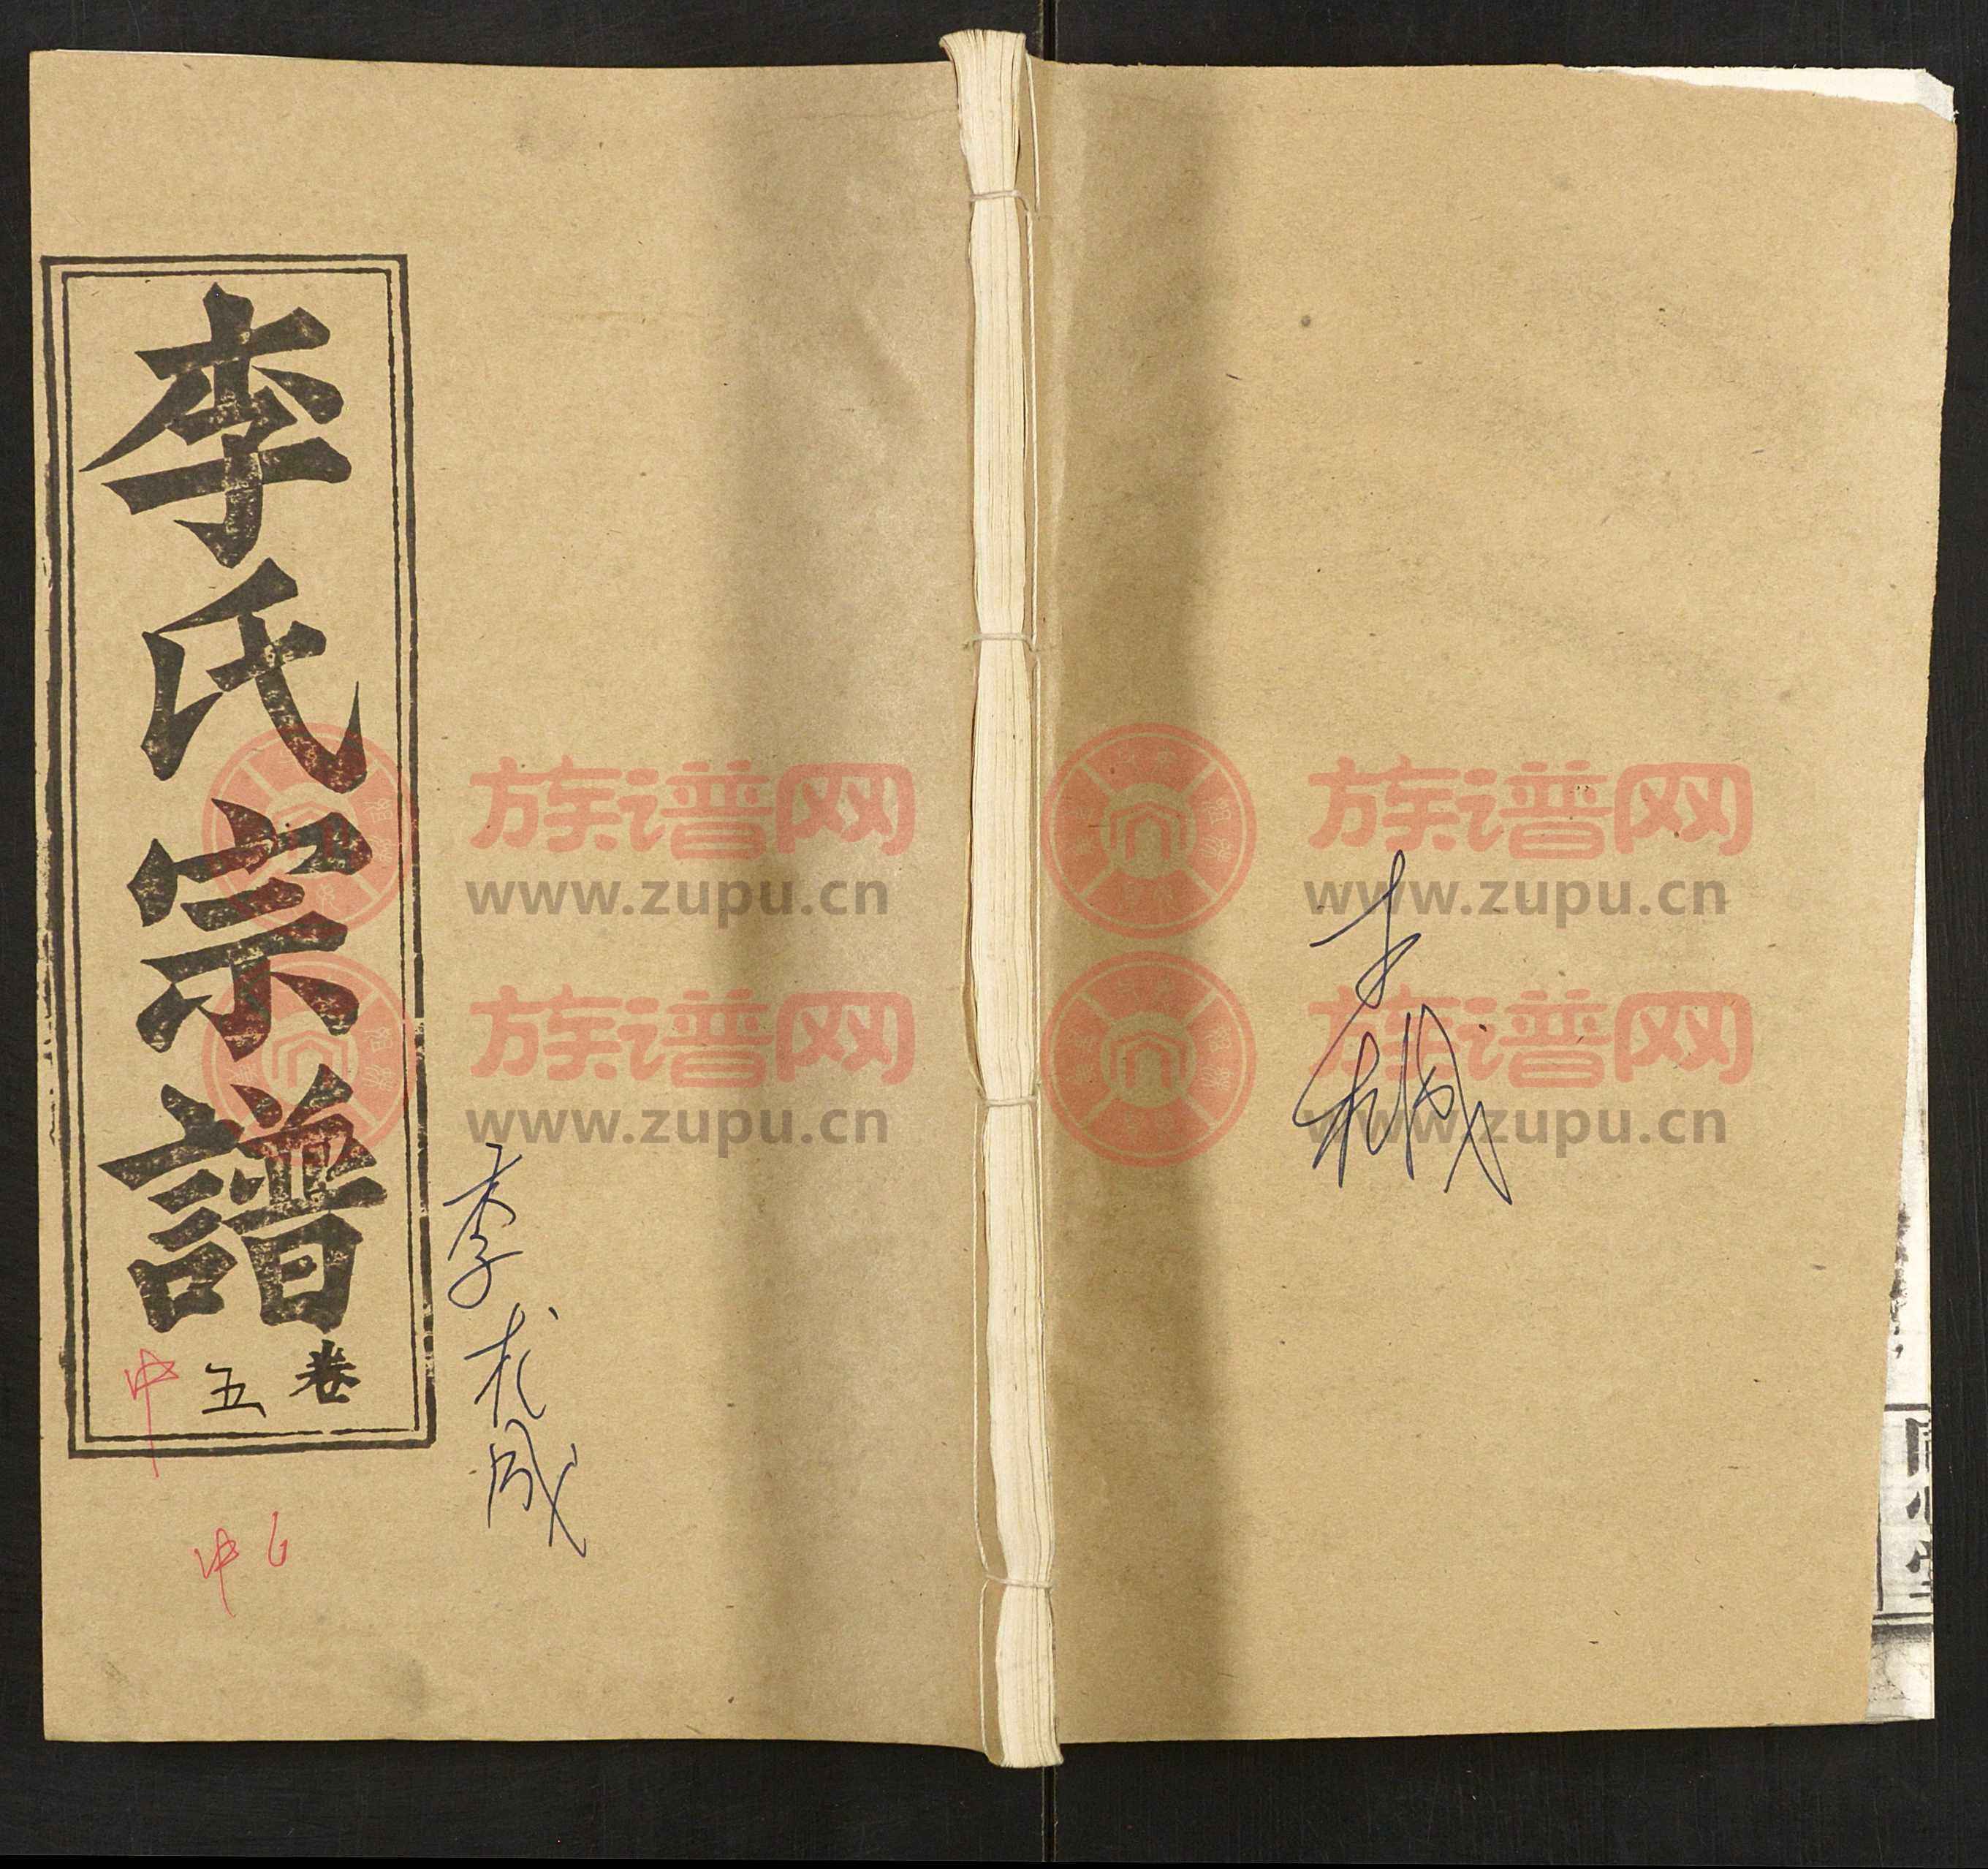 李氏宗譜
卷
五
中
中6
李松成
族谱网
www.zupu.cn
族谱网
www.zupu.cn
族谱网
www.zupu.cn
族谱网
www.zupu.cn